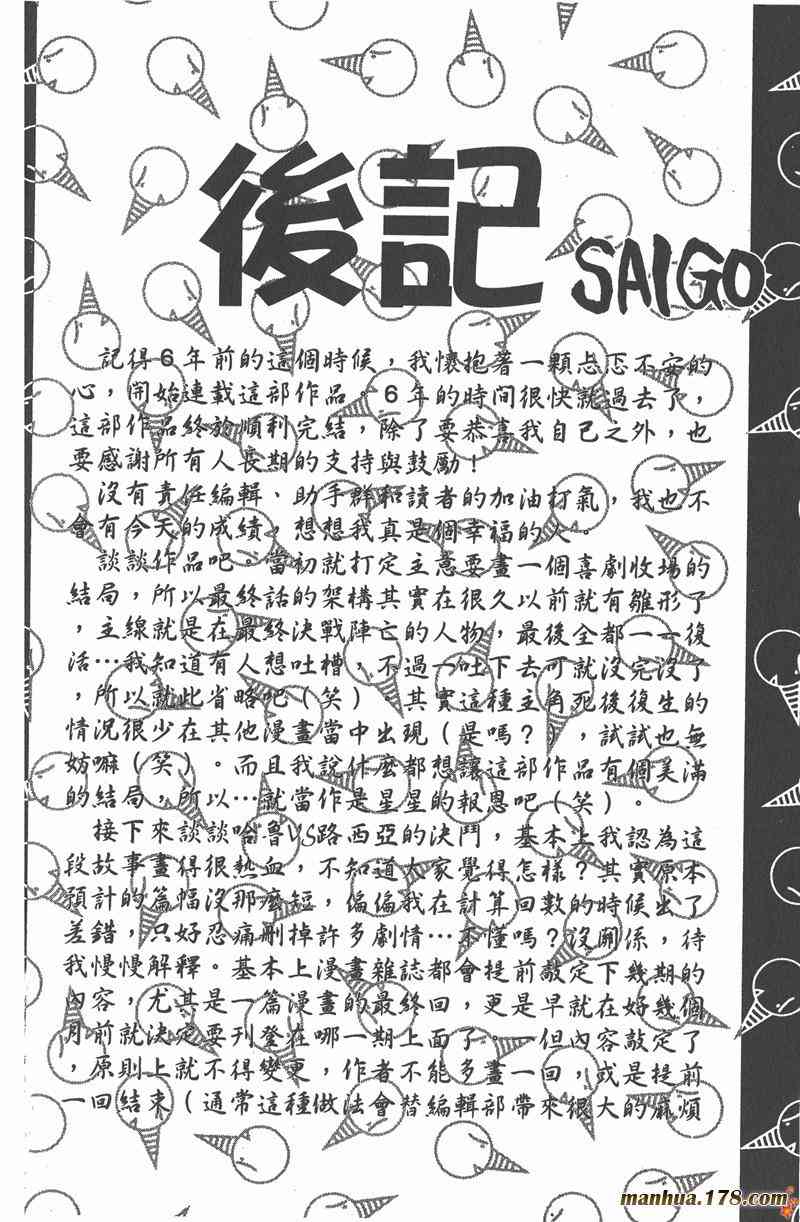 後記
SAIGO
記得6年前的這個時候，我懷抱著一顆忐忑不安的
心，開始連載這部作品。6年的時間很快就過去了，
這部作品終於順利完結，除了要恭喜我自己之外，也
要感謝所有人長期的支持與鼓勵！
沒有責任編輯、助手群和讀者的加油打氣，我也不
會有今天的成績，想想我真是個幸福的人。
談談作品吧。當初就打定主意要畫一個喜劇收場的
結局，所以最終話的架構其實在很久以前就有雛形了
，主線就是在最終決戰陣亡的人物，最後全都一一復
活…我知道有人想吐槽，不過一吐下去可就沒完沒了
，所以就此省略吧（笑）。其實這種主角死後復生的
情況很少在其他漫畫當中出現（是嗎？），試試也無
妨嘛（笑）。而且我說什麼都想讓這部作品有個美滿
的結局，所以…就當作是星星的報恩吧（笑）。
接下來談談哈魯VS路西亞的決鬥，基本上我認為這
段故事畫得很熱血，不知道大家覺得怎樣？其實原本
預計的篇幅沒那麼短，偏偏我在計算回數的時候出了
差錯，只好忍痛刪掉許多劇情…不懂嗎？沒關係，待
我慢慢解釋。基本上漫畫雜誌都會提前敲定下幾期的
內容，尤其是一篇漫畫的最終回，更是早就在好幾個
月前就決定要刊登在哪一期上面了。一但內容敲定了
，原則上就不得變更，作者不能多畫一回，或是提前
一回結束（通常這種做法會替編輯部帶來很大的麻煩
manhua.178.com